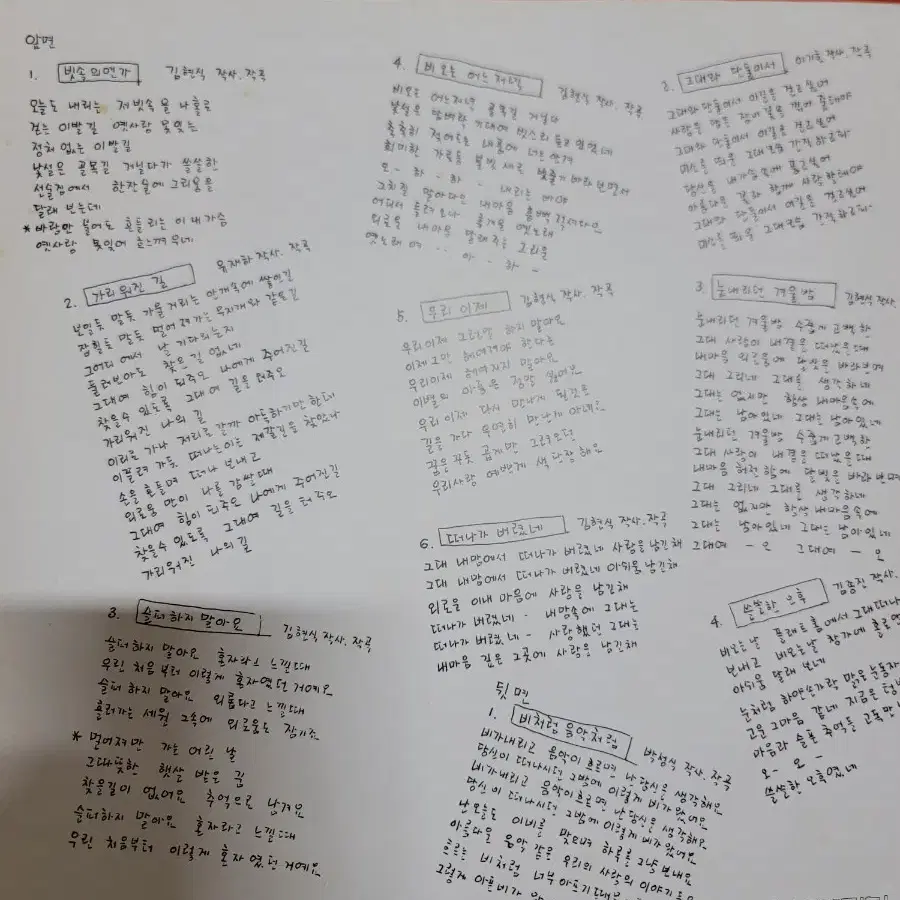 앞면
1. 빗속의 연가 김현식 작사.작곡
오늘도 내리는 저 빗속을 나홀로
걷는 이발길 옛사랑 못잊는
정처 없는 이발길
낯설은 골목길 거닐다가 쓸쓸한
선술집에서 한잔술에 그리움을
달래 보는데
* 바람만 불어도 흔들리는 이 내가슴
옛사랑 못잊어 흐느껴 우네
2. 가리워진 길 유재하 작사. 작곡
보일듯 말듯 가물거리는 안개속에 쌓인길
잡힐듯 말듯 멀어져가는 무지개와 같은길
그어디에서 날 기다리는지
둘러보아도 찾을길 없네
그대여 힘이 되주오 나에게 주어진길
찾을수 있도록 그대여 길을 터주오
가리워진 나의 길
이리로 가나 저리로갈까 아득하기만 한데
이끌려 가듯 떠나는이는 제갈길을 찾았나
손을 흔들며 떠나 보내고
외로움 만이 나를 감쌀때
그대여 힘이 되주오 나에게 주어진길
찾을수 있도록 그대여 길을 터주오
가리워진 나의길
3. 슬퍼하지 말아요 김현식 작사.작곡
슬퍼하지 말아요 혼자라고 느낄때
우린 처음부터 이렇게 혼자였던 거예요
슬퍼하지 말아요 외롭다고 느낄때
흘러가는 세월 그속에 외로움도 잠기죠
* 멀어져만 가는 어린 날
그따뜻한 햇살 받은 꿈
찾을길이 없어요 추억으로 남겨요
슬퍼하지 말아요 혼자라고 느낄때
우린 처음부터 이렇게 혼자 였던 거예요
4. 비오는 어느 저녁 김현식 작사. 작곡
비오는 어느저녁 골목길 거닐다
낯설은 담벼락 기대에 빗소리 듣고 있었네
촉촉히 젖어드는 내몸에 너는 안겨
희미한 가로등 불빛 새로 빗줄기 바라보면서
오 - 하 - 하 - 내리는 비야
그치질 말아다오 내마음 흠뻑 젖게
어디서 들려오나 흘겨운 옛노래
외로운 내마음 달래주는 그리운
옛노래여 .. 아 - 하 -
5. 우리 이제 김현식 작사. 작곡
우리이제 그런말 하지 말아요
이제 그만 헤여져야 한다는
우리이제 헤여지지 말아요
이별의 아픔은 정말 싫어요
우리 이제 다시 만나게 될것을
길을 가다 우연히 만난게 아녜요
꿈은꾸듯 곱게만 그려오던
우리사랑 예쁘게 색단장 해요
6. 떠나가 버렸네 김현식 작사.작곡
그대 내맘에서 떠나가 버렸네 사랑을 남긴채
그대 내맘에서 떠나가 버렸네 아쉬움 남긴채
외로운 이내 마음에 사랑을 남긴채
떠나가 버렸네 - 내맘속에 그대는
떠나가 버렸네 - 사랑했던 그대는
내마음 깊은 그곳에 사랑을 남긴채
뒷면
1. 비처럼 음악처럼 박성식 작사. 작곡
비가내리고 음악이 흐르면 난 당신을 생각해요
당신이 떠나시던 그밤에 이렇게 비가 왔어요
비가내리고 음악이흐르면 난 당신을 생각해요
당신이 떠나시던 그밤에 이렇게 비가왔어요
난 오늘도 이비를 맞으며 하루를 그냥 보내요
아름다운 음악 같은 우리의 사랑의 이야기들은
흐르는 비처럼 너무 아프기때문
그렇게 아픈비가 왔
2. 그대와 단둘이서 이기호 작사. 작곡
그대와 단둘이서 이길을 걸으면서
그대와 단둘이서 이길을 걸으면서
미소를 띄운 그대모습 간직하고파
당신을 내가슴속에 품고싶어
아름다운 꽃과 함께 사랑할테야
그대와 단둘이서 이길을 걸으면서
미소를 띄운 그대모습 간직하고파
3. 눈내리던 겨울밤 김현식 작사.
눈내리던 겨울밤 수줍게 고백한
그대 사랑이 내곁을 떠났을때
내마음 외로움에 달빛을 바라보며
그대 그리네 그대를 생각하네
그대는 없지만 항상 내마음속에
그대는 남아있네 그대는 남아있네
눈내리던 겨울밤 수줍게 고백한
그대 사랑이 내곁을 떠났을때
내마음 허전함에 달빛을 바라보며
그대 그리네 그대를 생각하네
그대는 없지만 항상 내마음속에
그대는 남아있네 그대는 남아있네
그대여 - 오 그대여 - 오
4. 쓸쓸한 오후 김종진 작사.
비오는날 플래트홈에서 그대 떠나
보내고 비오는날 창가에 홀로
아쉬움 달래 보네
눈처럼 하얀손가락 맑은 눈동자
고운 그마음 같네 지금은 텅
마음과 슬픈 추억들 고독만
오 - 오 -
쓸쓸한 오후였네